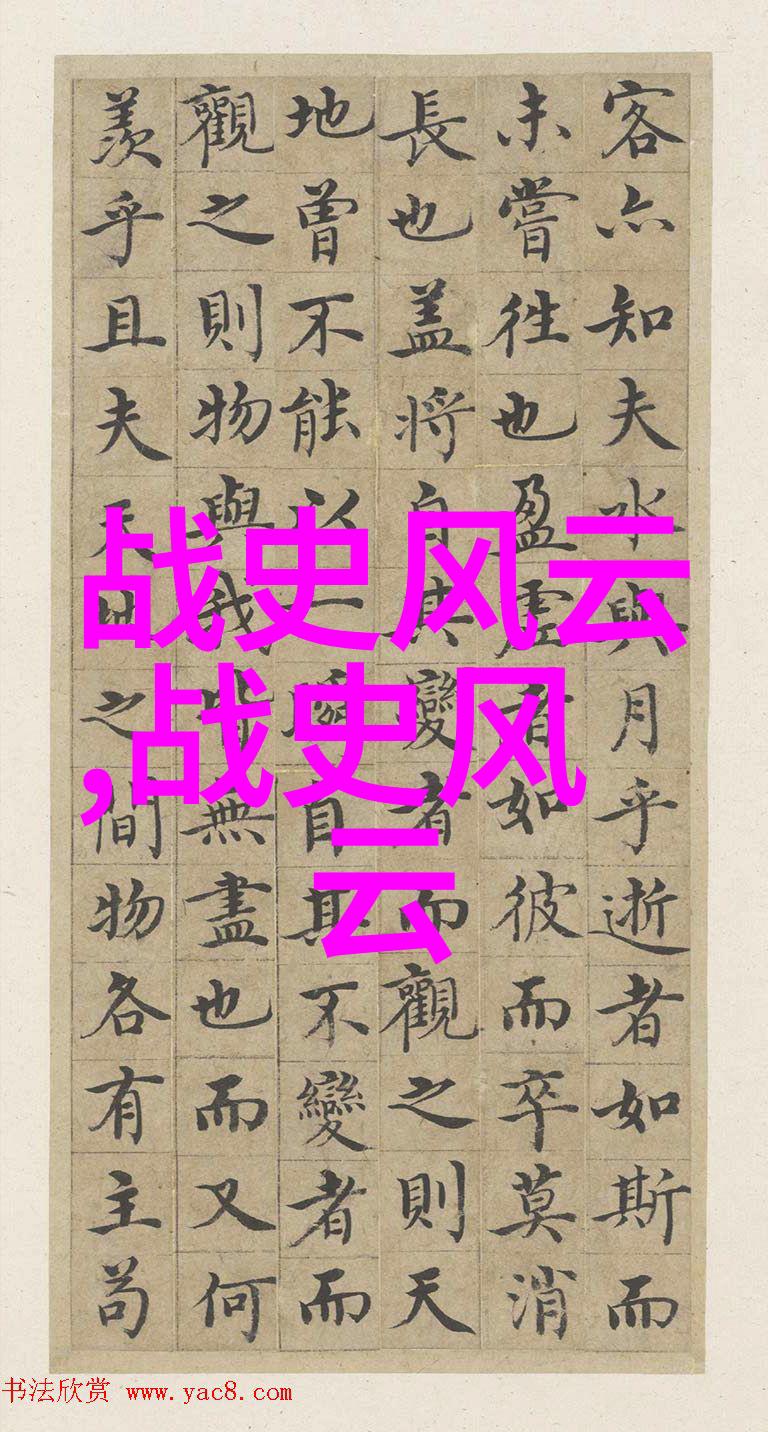 客亦知夫水與月乎逝者如斯而
未嘗往也盈虛者如彼而卒莫消
長也盖將自其變者而觀之則天
地曾不能以一瞬自其不變者而
觀之則物與我皆無盡也而又何
羨乎且夫天地之間物各有主苟
战史风云
,战史风
云
书法欣赏 www.yac8.com